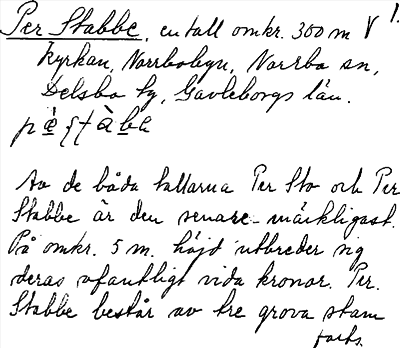 Per Stabbe, en tall omkr. 300 m V 1.
kyrkan, Norrbobyn, Norrbo sn,
Delsbo tg, Gävleborgs län.
Av de båda tallarna Per Sto och Per
Stabbe är den senare märkligast.
På omkr. 5 m. höjd utbreder sig
deras ofantligt vida kronor. Per.
Stabbe består av tre grova stam
forts.